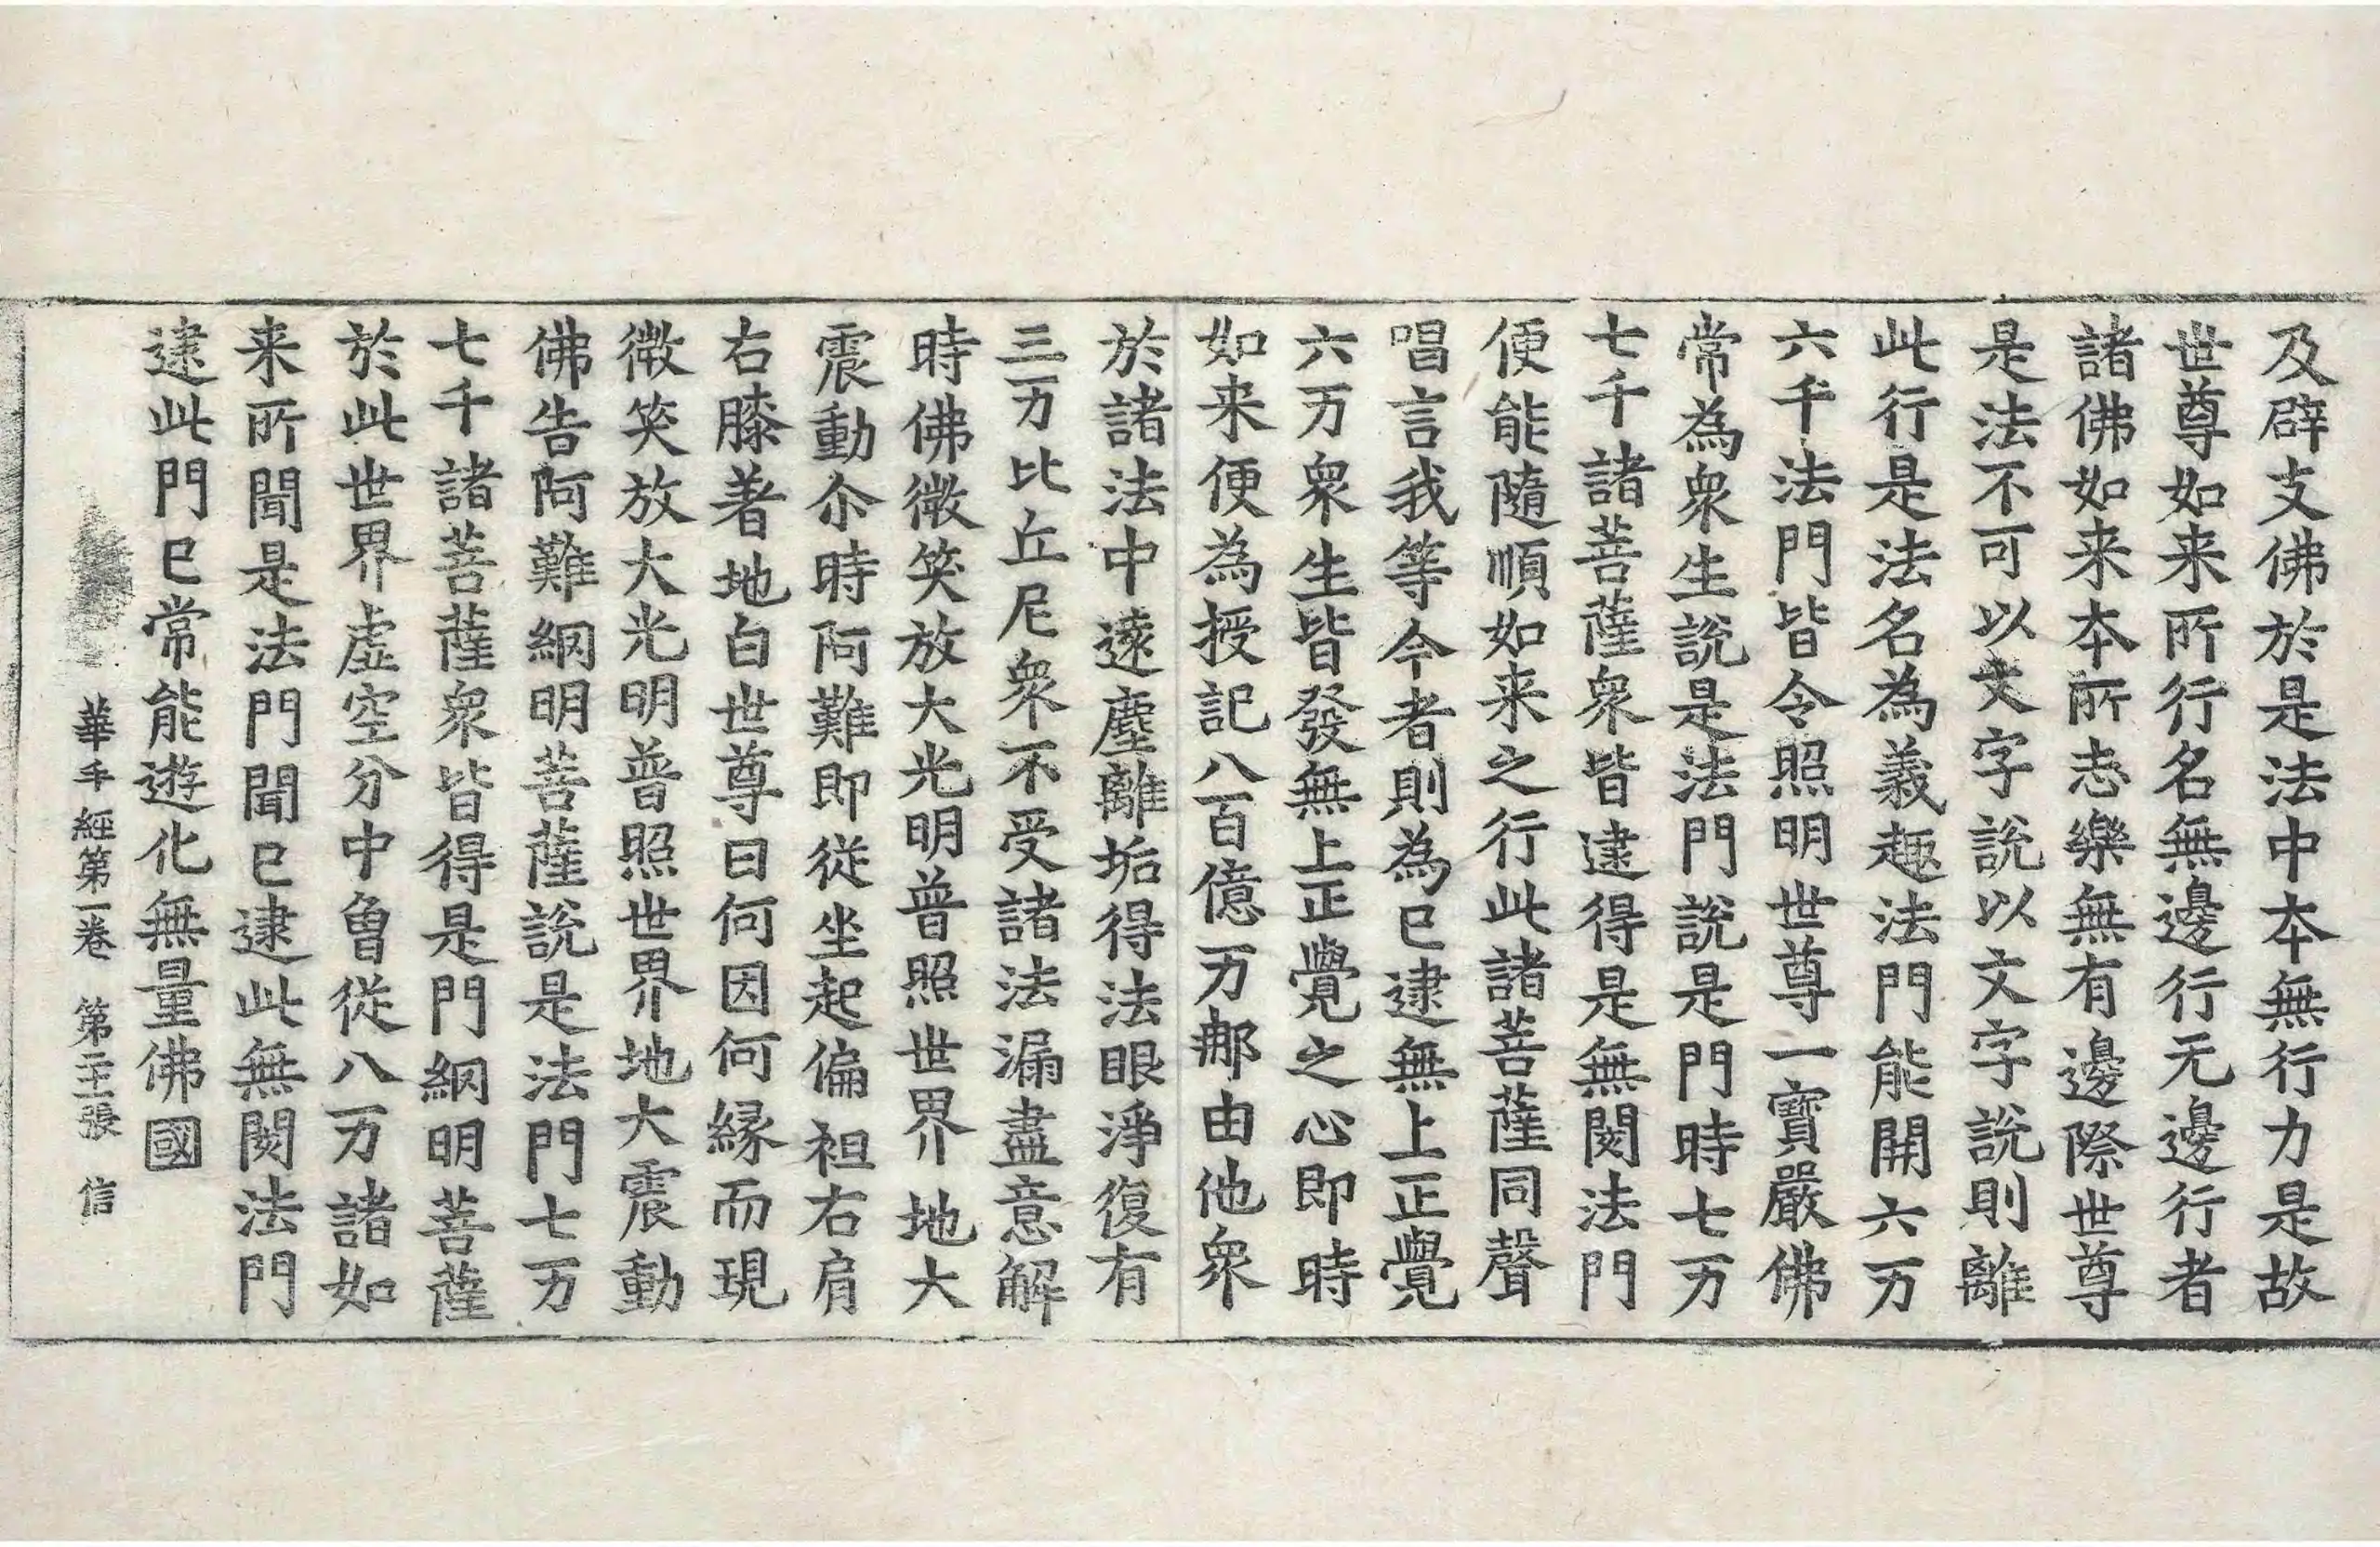 及辟支佛於是法中本無行力是故
世尊如来所行名無邊行无邊行者
諸佛如来本所志樂無有邊際世尊
是法不可以文字說以文字說則離
此行是法名為義趣法門能開六万
六千法門皆令照明世尊一寶嚴佛
常為衆生說是法門說是門時七万
七千諸菩薩衆皆逮得是無閡法門
便能隨順如来之行此諸菩薩同聲
唱言我等今者則為已逮無上正覺
六万衆生皆發無上正覺之心即時
如来便為授記八百億万那由他衆
於諸法中遠塵離垢得法眼淨復有
三万比丘尼衆不受諸法漏盡意解
時佛微笑放大光明普照世界地大
震動尒時阿難即從坐起偏袒右肩
右膝著地白世尊曰何因何緣而現
微笑放大光明普照世界地大震動
佛告阿難網明菩薩說是法門七万
七千諸菩薩衆皆得是門網明菩薩
於此世界虛空分中曾從八万諸如
来所聞是法門聞已逮此無閡法門
逮此門已常能遊化無量佛國
華手經第一卷 第二主張 信